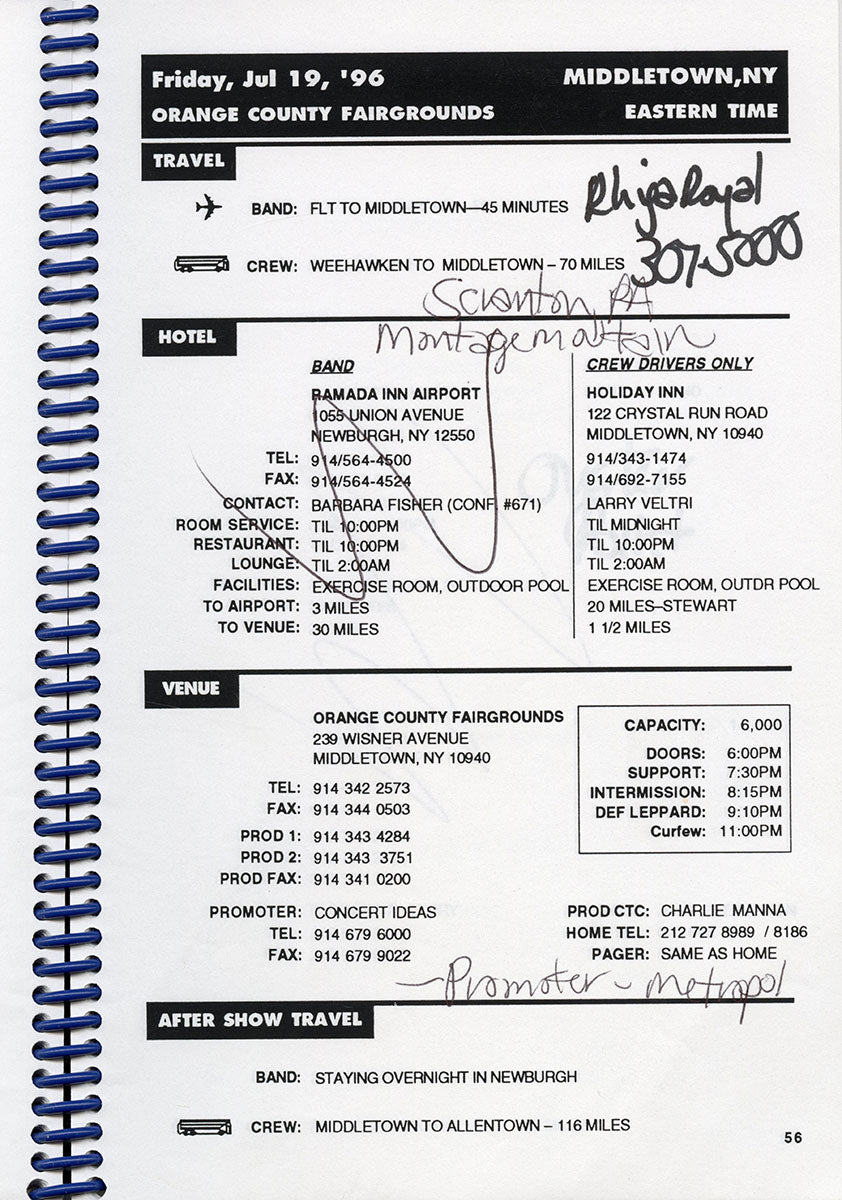 Friday, Jul 19, '96 MIDDLETOWN,NY
ORANGE COUNTY FAIRGROUNDS EASTERN TIME
TRAVEL
BAND: FLT TO MIDDLETOWN—45 MINUTES
Royal
307-5000
CREW: WEEHAWKEN TO MIDDLETOWN – 70 MILES
Scranton, PA
HOTEL
Montage
BAND CREW DRIVERS ONLY
RAMADA INN AIRPORT HOLIDAY INN
1055 UNION AVENUE 122 CRYSTAL RUN ROAD
NEWBURGH, NY 12550 MIDDLETOWN, NY 10940
TEL: 914/564-4500 914/343-1474
FAX: 914/564-4524 914/692-7155
CONTACT: BARBARA FISHER (CONF. #671) LARRY VELTRI
ROOM SERVICE: TIL 10:00PM TIL MIDNIGHT
RESTAURANT: TIL 10:00PM TIL 10:00PM
LOUNGE: TIL 2:00AM TIL 2:00AM
FACILITIES: EXERCISE ROOM, OUTDOOR POOL EXERCISE ROOM, OUTDR POOL
TO AIRPORT: 3 MILES 20 MILES–STEWART
TO VENUE: 30 MILES 1 1/2 MILES
VENUE
ORANGE COUNTY FAIRGROUNDS
239 WISNER AVENUE
MIDDLETOWN, NY 10940
TEL: 914 342 2573
FAX: 914 344 0503
PROD 1: 914 343 4284
PROD 2: 914 343 3751
PROD FAX: 914 341 0200
CAPACITY: 6,000
DOORS: 6:00PM
SUPPORT: 7:30PM
INTERMISSION: 8:15PM
DEF LEPPARD: 9:10PM
Curfew: 11:00PM
PROMOTER: CONCERT IDEAS PROD CTC: CHARLIE MANNA
TEL: 914 679 6000 HOME TEL: 212 727 8989 / 8186
FAX: 914 679 9022 PAGER: SAME AS HOME
~Promoter - Metropol
AFTER SHOW TRAVEL
BAND: STAYING OVERNIGHT IN NEWBURGH
CREW: MIDDLETOWN TO ALLENTOWN – 116 MILES
56